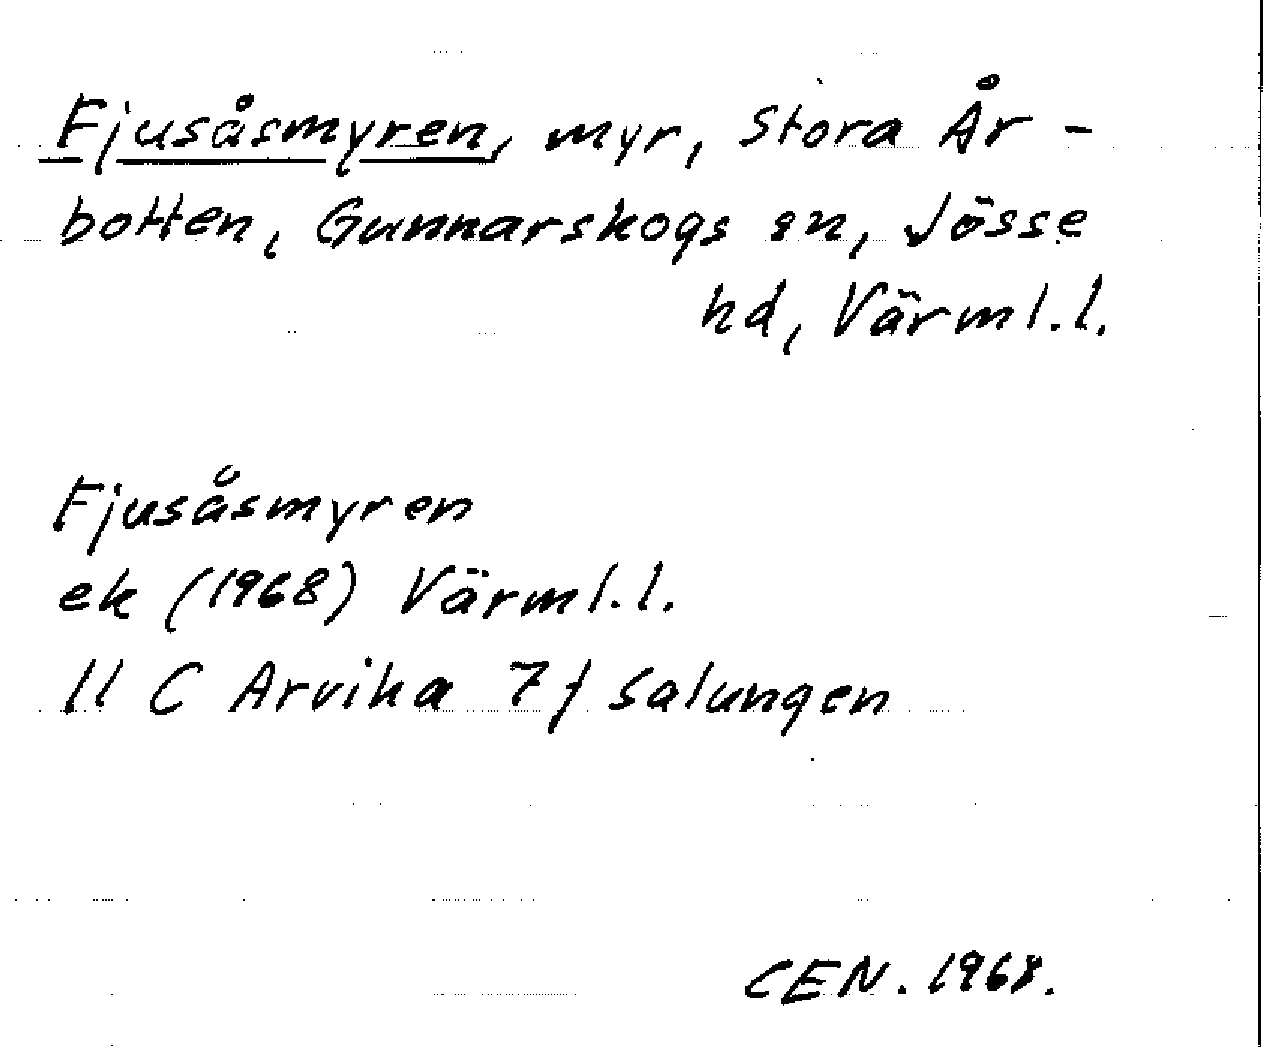 Fjusåsmyren, myr, Stora År-
botten, Gunnarskogs sn, Jösse
hd, Värml.l.
Fjusåsmyren
ek (1968) Värml.l.
11 C Arvika 7f Salungen
CEN. 1968.